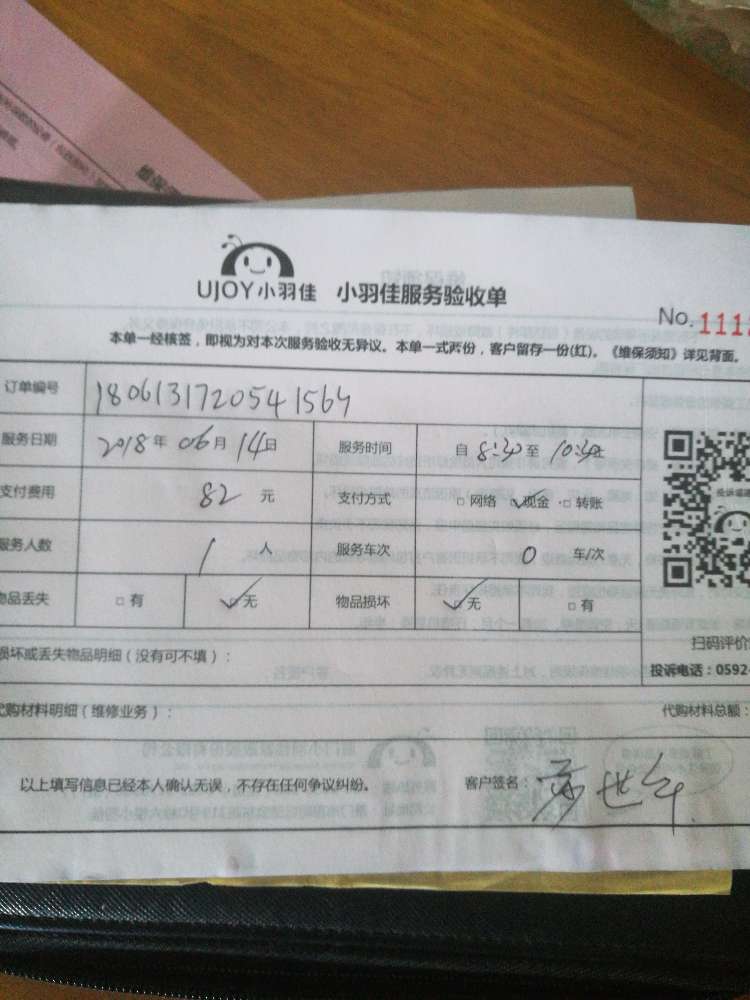 UJOY小羽佳 小羽佳服务验收单
No. 111
本单一经核签，即视为对本次服务验收无异议。本单一式两份，客户留存一份(红)。《维保须知》详见背面。
订单编号 1806131720541564
服务日期 2018年 06月 14日 服务时间 自 8:30 至 10:30
支付费用 82 元 支付方式 □ 网络 ✓现金 □ 转账
服务人数 1 人 服务车次 0 车/次
物品丢失 □ 有 ✓无 物品损坏 ✓无 □ 有
扫码评价
损坏或丢失物品明细（没有可不填）：
投诉电话：0592-
代购材料明细（维修业务）： 代购材料总额：
以上填写信息已经本人确认无误，不存在任何争议纠纷。 客户签名：